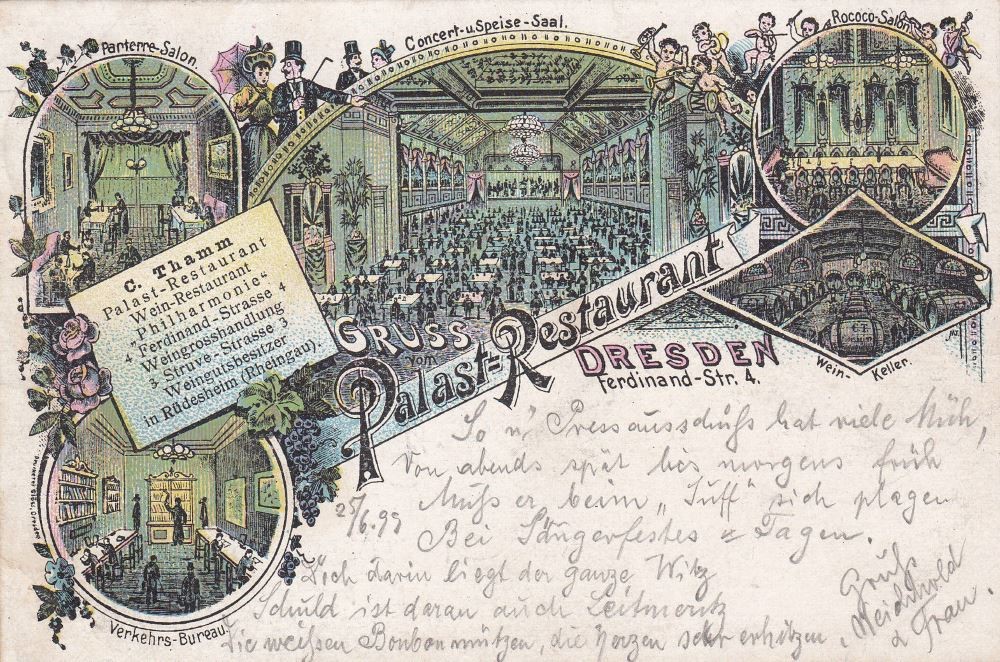 Parterre-Salon.
Concert-u Speise-Saal.
Rococo-Salon.
C. Thamm
Palast-Restaurant
Wein-Restaurant
"Philharmonie"
4 Ferdinand-Strasse 4
Weingrosshandlung
3 Struve-Strasse 3
Weingutsbesitzer
in Rüdesheim (Rheingau).
GRUSS
vom
Palast-Restaurant
DRESDEN
Ferdinand-Str. 4.
Wein-Keller.
Verkehrs-Bureau.
So n' Pressausschuß hat viele Müh,
Von abends spät bis morgens früh
Muß er beim "Suff" sich plagen
25/6.99
Bei Sängerfestes = Tagen.
Doch darin liegt der ganze Witz
Schuld ist daran auch Leitmeritz
Die weißen Bonbonmützen, die Herzen sehr erhitzen.
Gruß
& Frau.